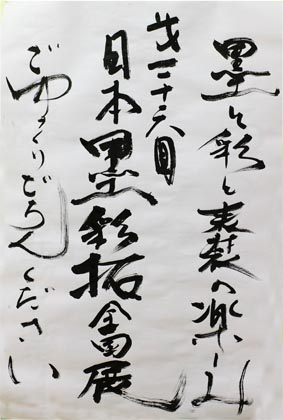 墨と彩と表装の楽しみ
日本墨彩拓画展
ごゆっくりごらんください